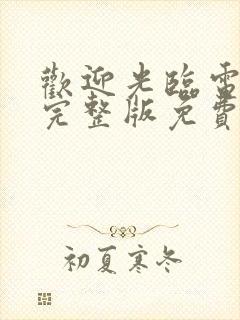 歡迎光臨雷
完整版免費
初夏寒冬